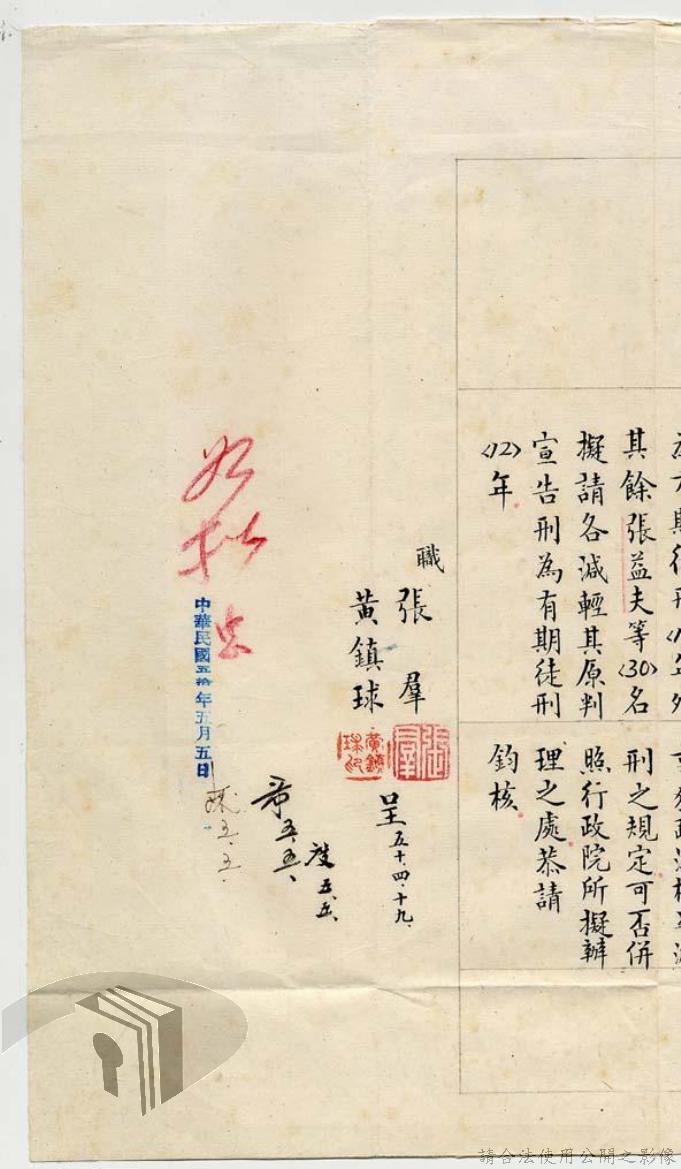 其餘張益夫等(30)名
擬請各減輕其原判
宣告刑為有期徒刑
(12)年
刑之規定可否併
照行政院所擬辦
理之處恭請
鈞核
職
張羣
黃鎮球
張羣
黃鎮球印
呈五十.四.十九.
如擬
中華民國五拾年五月五日
五.五.
五.五.
五.五.
請合法使用公開之影像